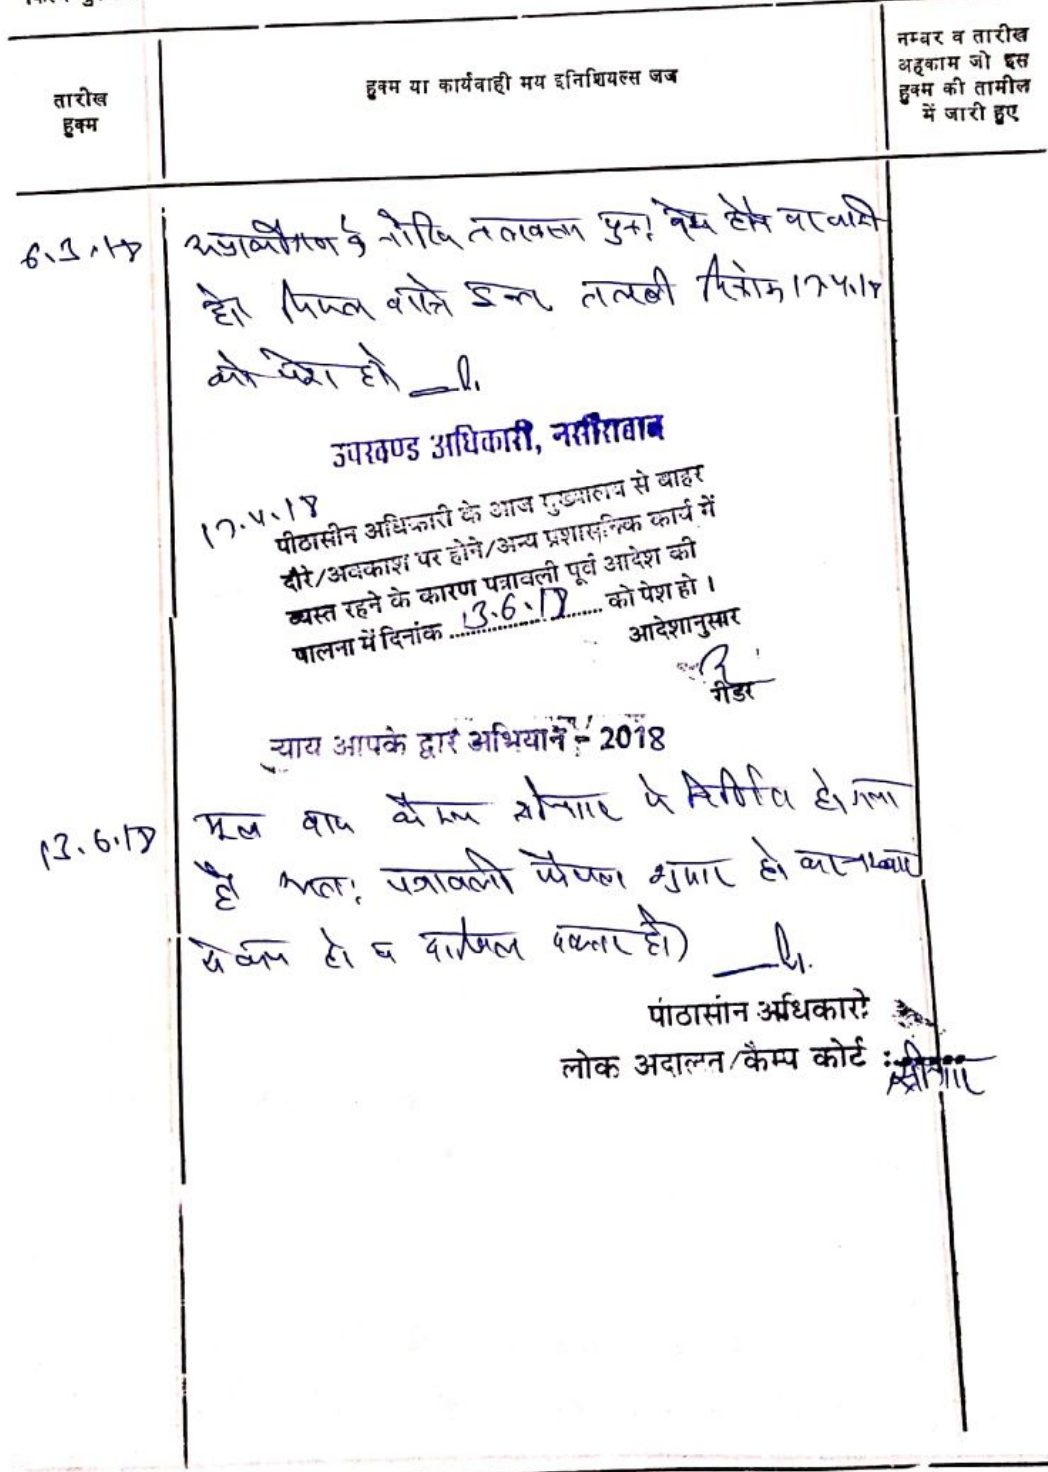 तारीख
हुक्म
हुक्म या कार्यवाही मय इनिशियल्स जज
नम्बर व तारीख
अहकाम जो इस
हुक्म की तामील
में जारी हुए
6.3.18
के नोटिस तलवाना पुनः पेश होने पर जारी
हो। तलबी दिनांक 17.4.18
को पेश हो
उपखण्ड अधिकारी, नसीराबाद
17.4.18
पीठासीन अधिकारी के आज मुख्यालय से बाहर
दौरे/अवकाश पर होने/अन्य प्रशासनिक कार्य में
व्यस्त रहने के कारण पत्रावली पूर्व आदेश की
पालना में दिनांक 13.6.18 को पेश हो ।
आदेशानुसार
रीडर
न्याय आपके द्वार अभियान - 2018
13.6.18
मूल वाद कैम्प में निर्णित हो गया
है अतः पत्रावली फैसल शुमार हो
से कम हो व दाखिल दफ्तर हो
पीठासीन अधिकारी
लोक अदालत/कैम्प कोर्ट :